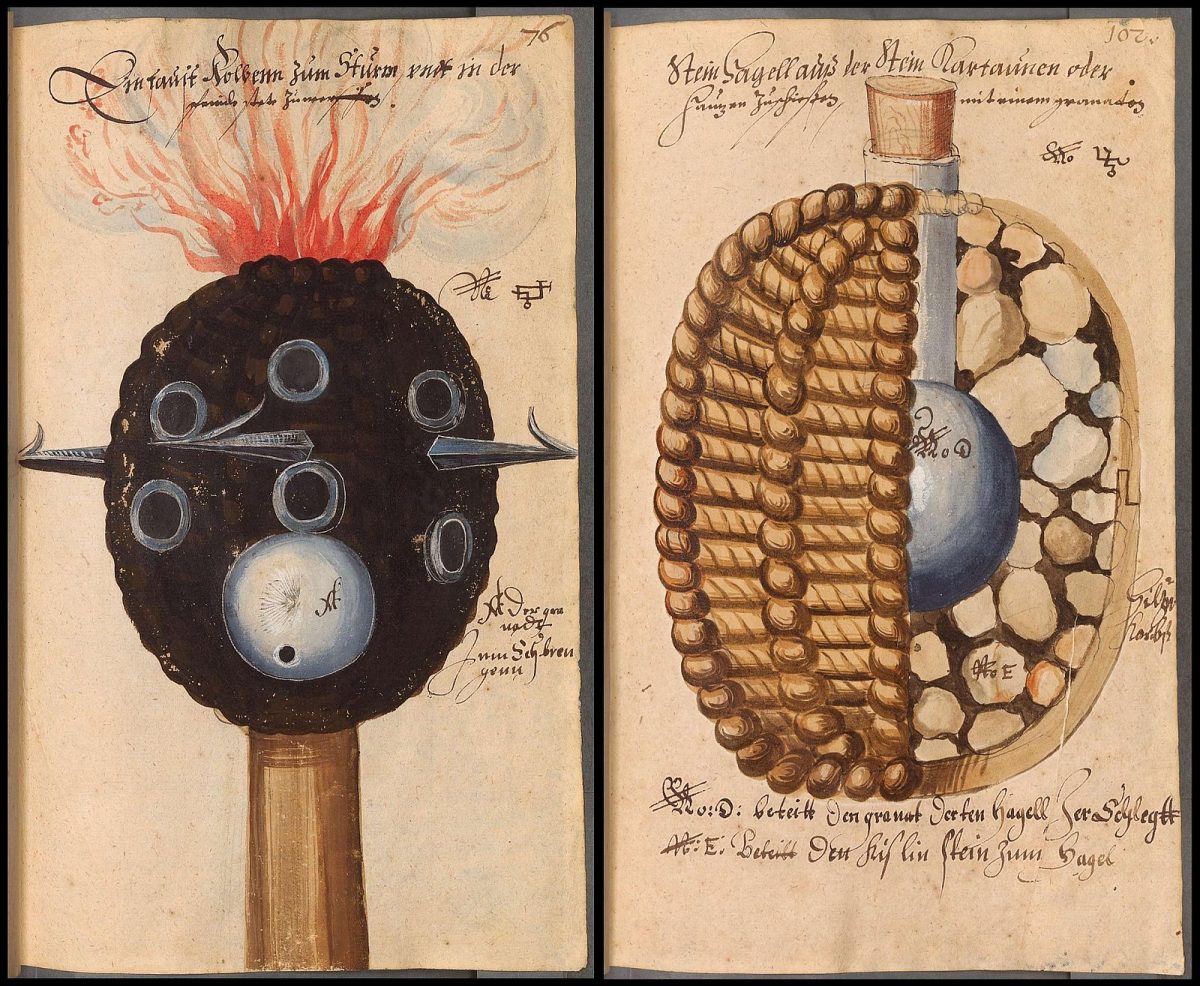 76
Ein faust Kolbenn zum Sturm, unt in der
feinde stete zu werffen.
No
A der gra
nadt
Zum Schbren
genn
A
102.
Stein Hagell auß der Stein Kartaunen oder
Hauzen zuschießen mit einem granaden
No
No D
Hiltzen
Korb
No E
No: D: beteitt den granat der ten Hagell Zer Schlegtt
No: E: Beteitt Den Kislin stein zum Hagel